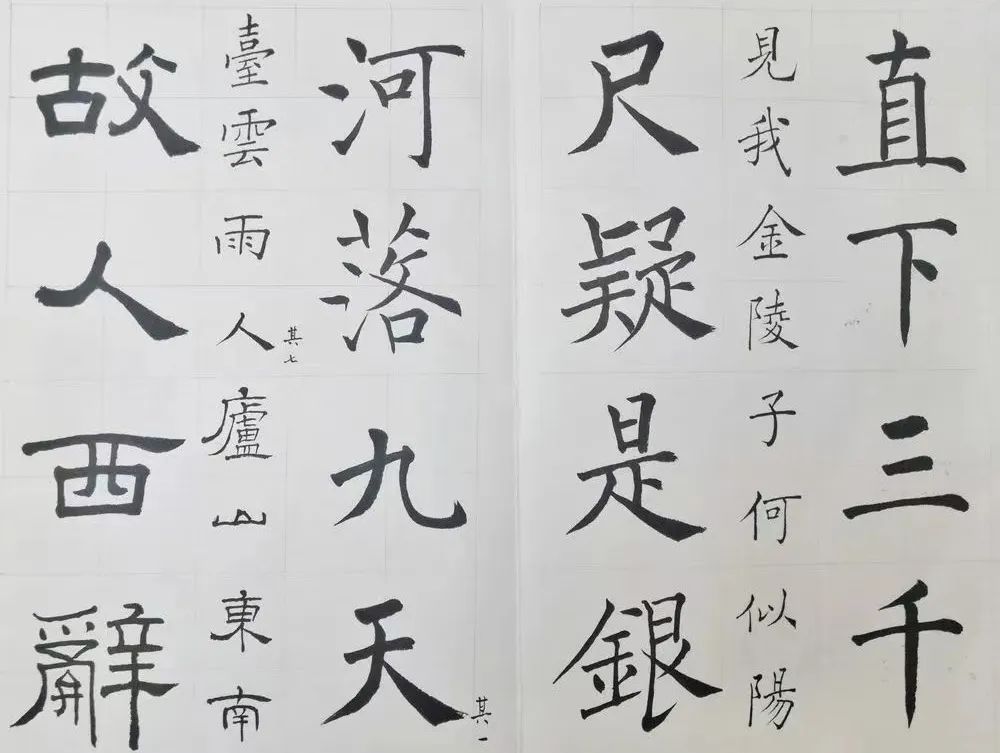 直下三千
見我金陵子何似陽
尺疑是銀
河落九天
其一
臺雲雨人
其七
廬山東南
故人西辭